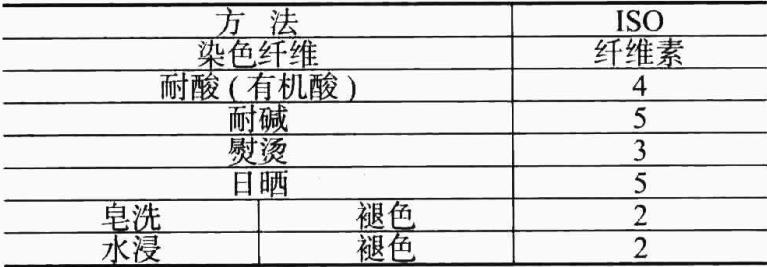 方 法 ISO
染色纤维 纤维素
耐酸(有机酸) 4
耐碱 5
熨烫 3
日晒 5
皂洗 褪色 2
水浸 褪色 2